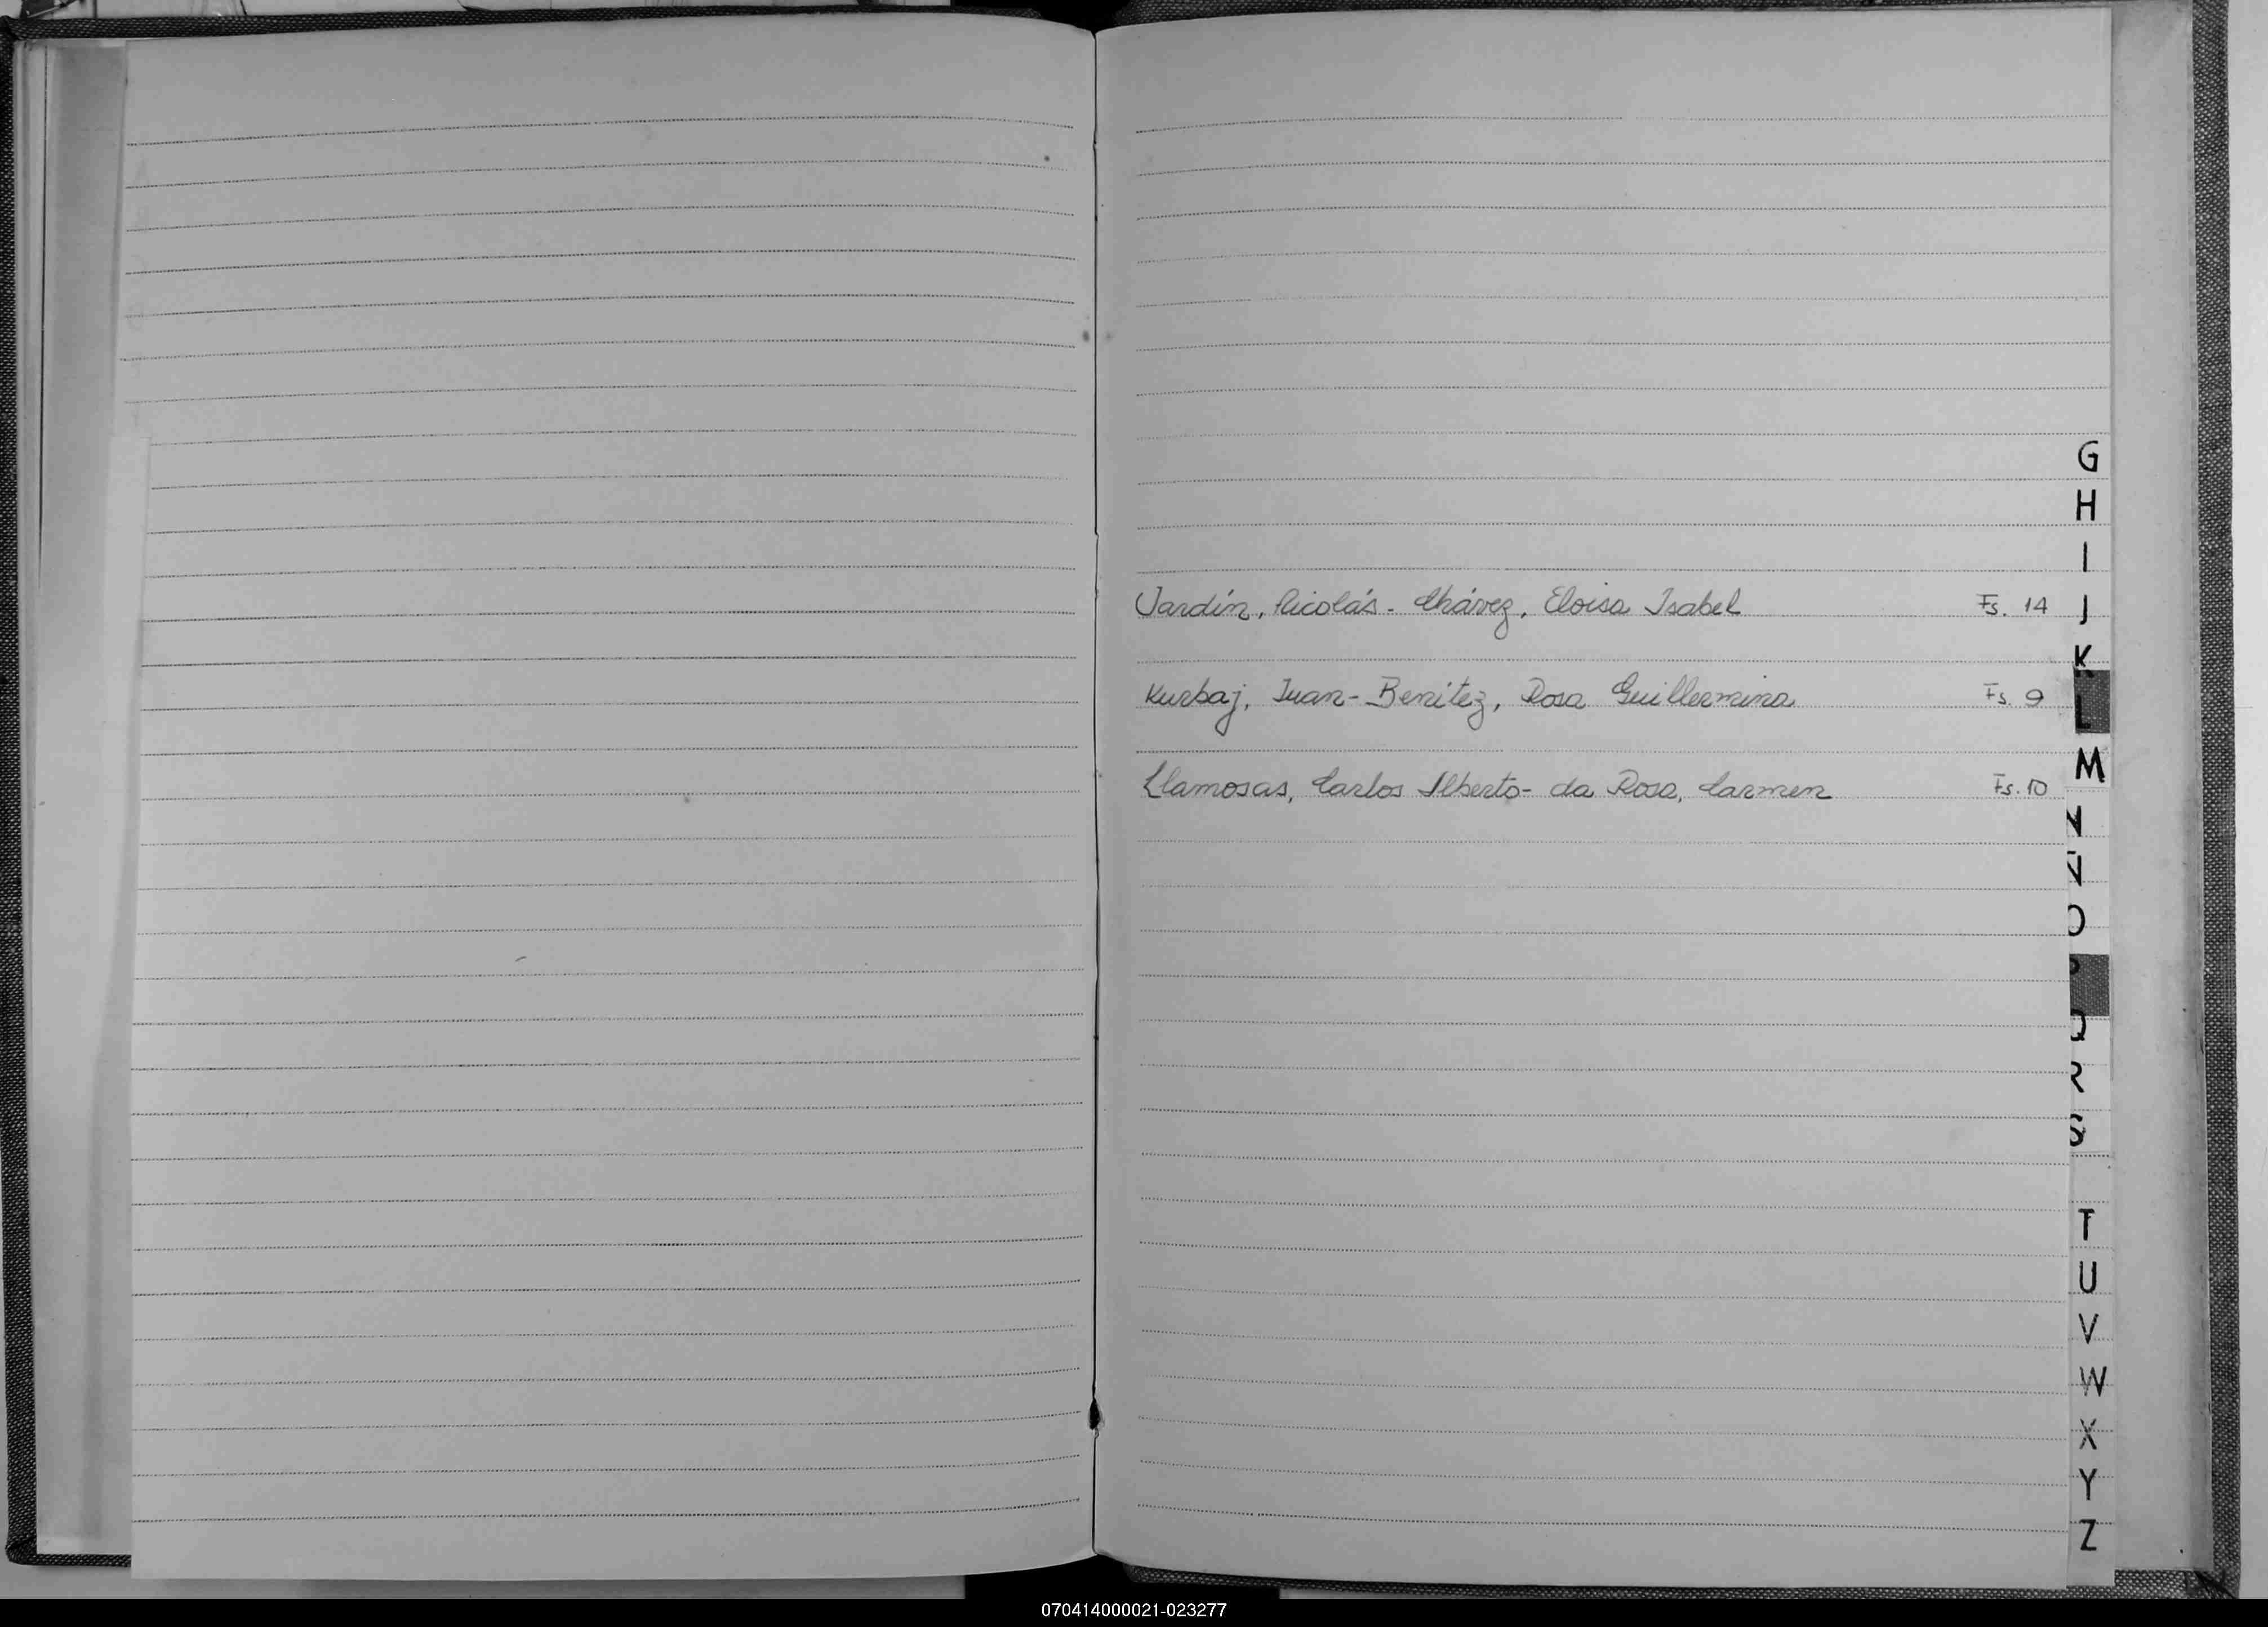 G
H
I
Jardín, Nicolás - Chávez, Eloisa Isabel Fs. 14 J
K
Kurbaj, Juan - Benítez, Rosa Guillermina Fs. 9
L
M
Llamosas, Carlos Alberto - da Rosa, Carmen Fs. 10
N
Ñ
O
P
Q
R
S
T
U
V
W
X
Y
Z
070414000021-023277